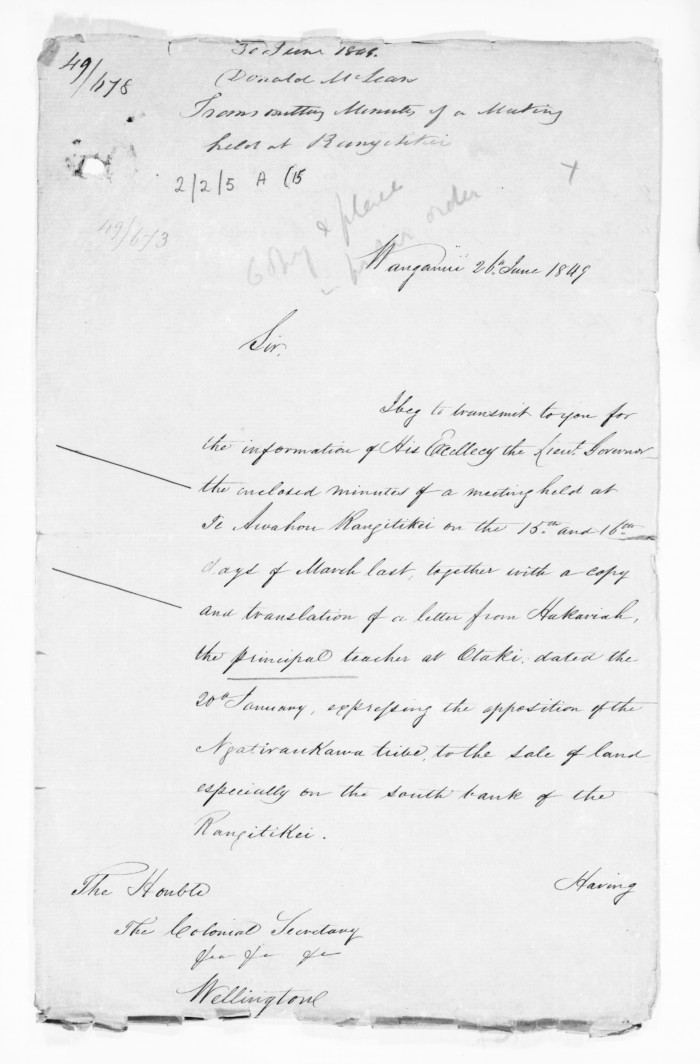 49/678
26 June 1849.
Donald McLean
Transmitting Minutes of a Meeting
held at Rangitikei
2/2/5 A (15
X
49/673
Copy & place
in order
Wanganui 26th June 1849
Sir,
I beg to transmit to you for
the information of His Excellecy the Lieut. Governor
the enclosed minutes of a meeting held at
Te Awahou Rangitikei on the 15th and 16th
days of March last, together with a copy
and translation of a letter from Hakaraiah,
the principal teacher at Otaki, dated the
20th January, expressing the opposition of the
Ngatiraukawa tribe, to the sale of land
especially on the south bank of the
Rangitikei.
Having
The Honble
The Colonial Secretary
&c &c &c
Wellington